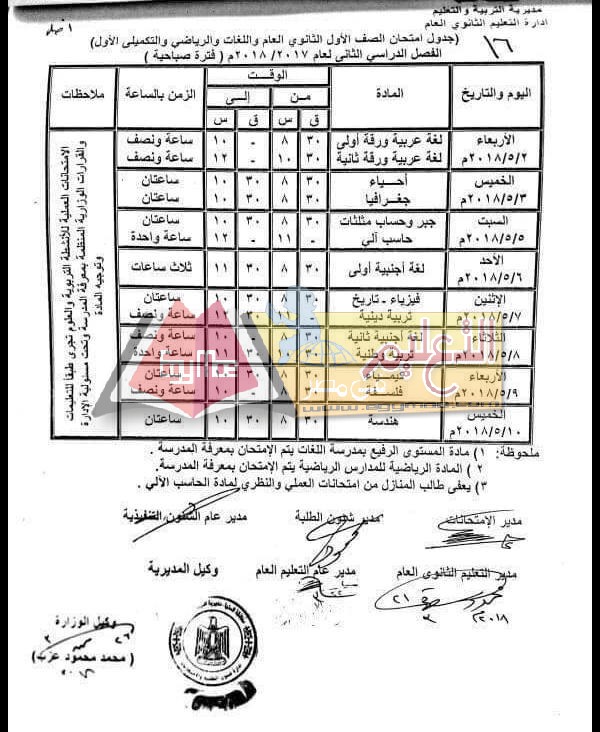 مديرية التربية والتعليم
إدارة التعليم الثانوي العام
١٦
(جدول امتحان الصف الأول الثانوي العام واللغات والرياضي والتكميلى الأول)
الفصل الدراسي الثانى لعام ٢٠١٧/ ٢٠١٨م ( فترة صباحية )
اليوم والتاريخ المادة الوقت الزمن بالساعة ملاحظات
من إلى
ق س ق س
الأربعاء لغة عربية ورقة أولى ٣٠ ٨ - ١٠ ساعة ونصف
٢٠١٨/٥/٢م لغة عربية ورقة ثانية ٣٠ ١٠ - ١٢ ساعة ونصف
الخميس أحياء ٣٠ ٨ ٣٠ ١٠ ساعتان
٢٠١٨/٥/٣م جغرافيا ٣٠ ٨ ٣٠ ١٠ ساعتان
السبت جبر وحساب مثلثات ٣٠ ٨ ٣٠ ١٠ ساعتان
٢٠١٨/٥/٥م حاسب آلي - ١١ - ١٢ ساعة واحدة
الأحد لغة أجنبية أولى ٣٠ ٨ ٣٠ ١١ ثلاث ساعات
٢٠١٨/٥/٦م
الإثنين فيزياء - تاريخ ٣٠ ٨ ٣٠ ١٠ ساعتان
٢٠١٨/٥/٧م تربية دينية ١١ ساعة ونصف
الثلاثاء لغة أجنبية ثانية ساعة ونصف
٢٠١٨/٥/٨م تربية وطنية ساعة واحدة
الأربعاء ساعتان
٢٠١٨/٥/٩م فلسفة ساعة ونصف
الخميس هندسة ٣٠ ٨ ٣٠ ١٠ ساعتان
٢٠١٨/٥/١٠م
الامتحانات العملية للأنشطة التربوية والعلوم تجرى طبقا للتعليمات
والقرارات الوزارية المنظمة بمعرفة المدرسة وتحت مسئولية الإدارة
وتوجيه المادة
ملحوظة: ١) مادة المستوى الرفيع بمدرسة اللغات يتم الإمتحان بمعرفة المدرسة .
٢ ) المادة الرياضية للمدارس الرياضية يتم الإمتحان بمعرفة المدرسة.
٣ ) يعفى طالب المنازل من امتحانات العملي والنظري لمادة الحاسب الآلي .
مدير الإمتحانات مدير شئون الطلبة مدير عام الشئون التنفيذية
مدير التعليم الثانوى العام مدير عام التعليم العام وكيل المديرية
وكيل الوزارة
( محمد محمود عزب )